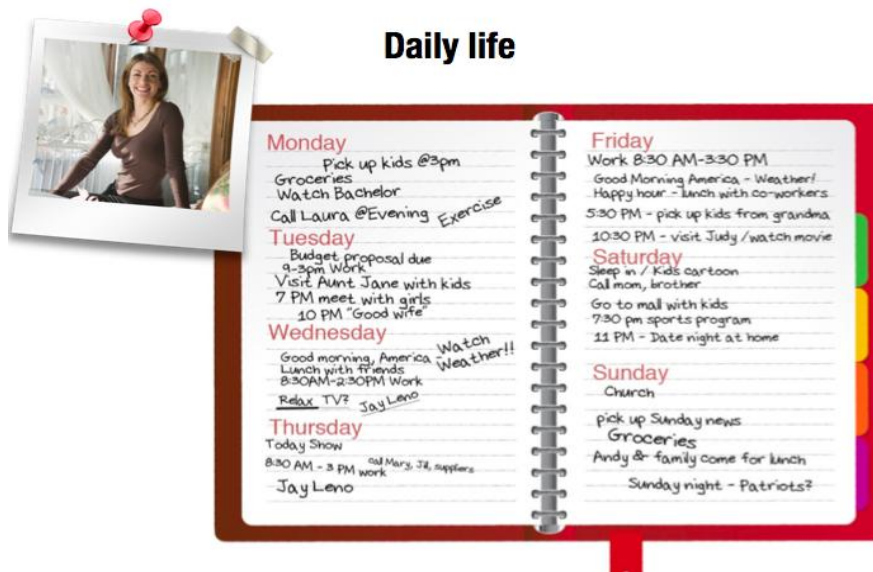 Daily life
Monday
Pick up kids @3pm
Groceries
Watch Bachelor
Call Laura @Evening Exercise
Tuesday
Budget proposal due
9-3pm Work
Visit Aunt Jane with kids
7 PM meet with girls
10 PM "Good wife"
Wednesday
Good morning, America - Watch Weather!!
Lunch with friends
8:30AM-2:30PM Work
Relax TV? Jay Leno
Thursday
Today Show
8:30 AM - 3 PM work call Mary, Jil, suppliers
Jay Leno
Friday
Work 8:30 AM-3:30 PM
Good Morning America - Weather!
Happy hour - lunch with co-workers
5:30 PM - pick up kids from grandma
10:30 PM - visit Judy /watch movie
Saturday
Sleep in / Kids cartoon
Call mom, brother
Go to mall with kids
7:30 pm sports program
11 PM - Date night at home
Sunday
Church
pick up Sunday news
Groceries
Andy & family come for lunch
Sunday night - Patriots?